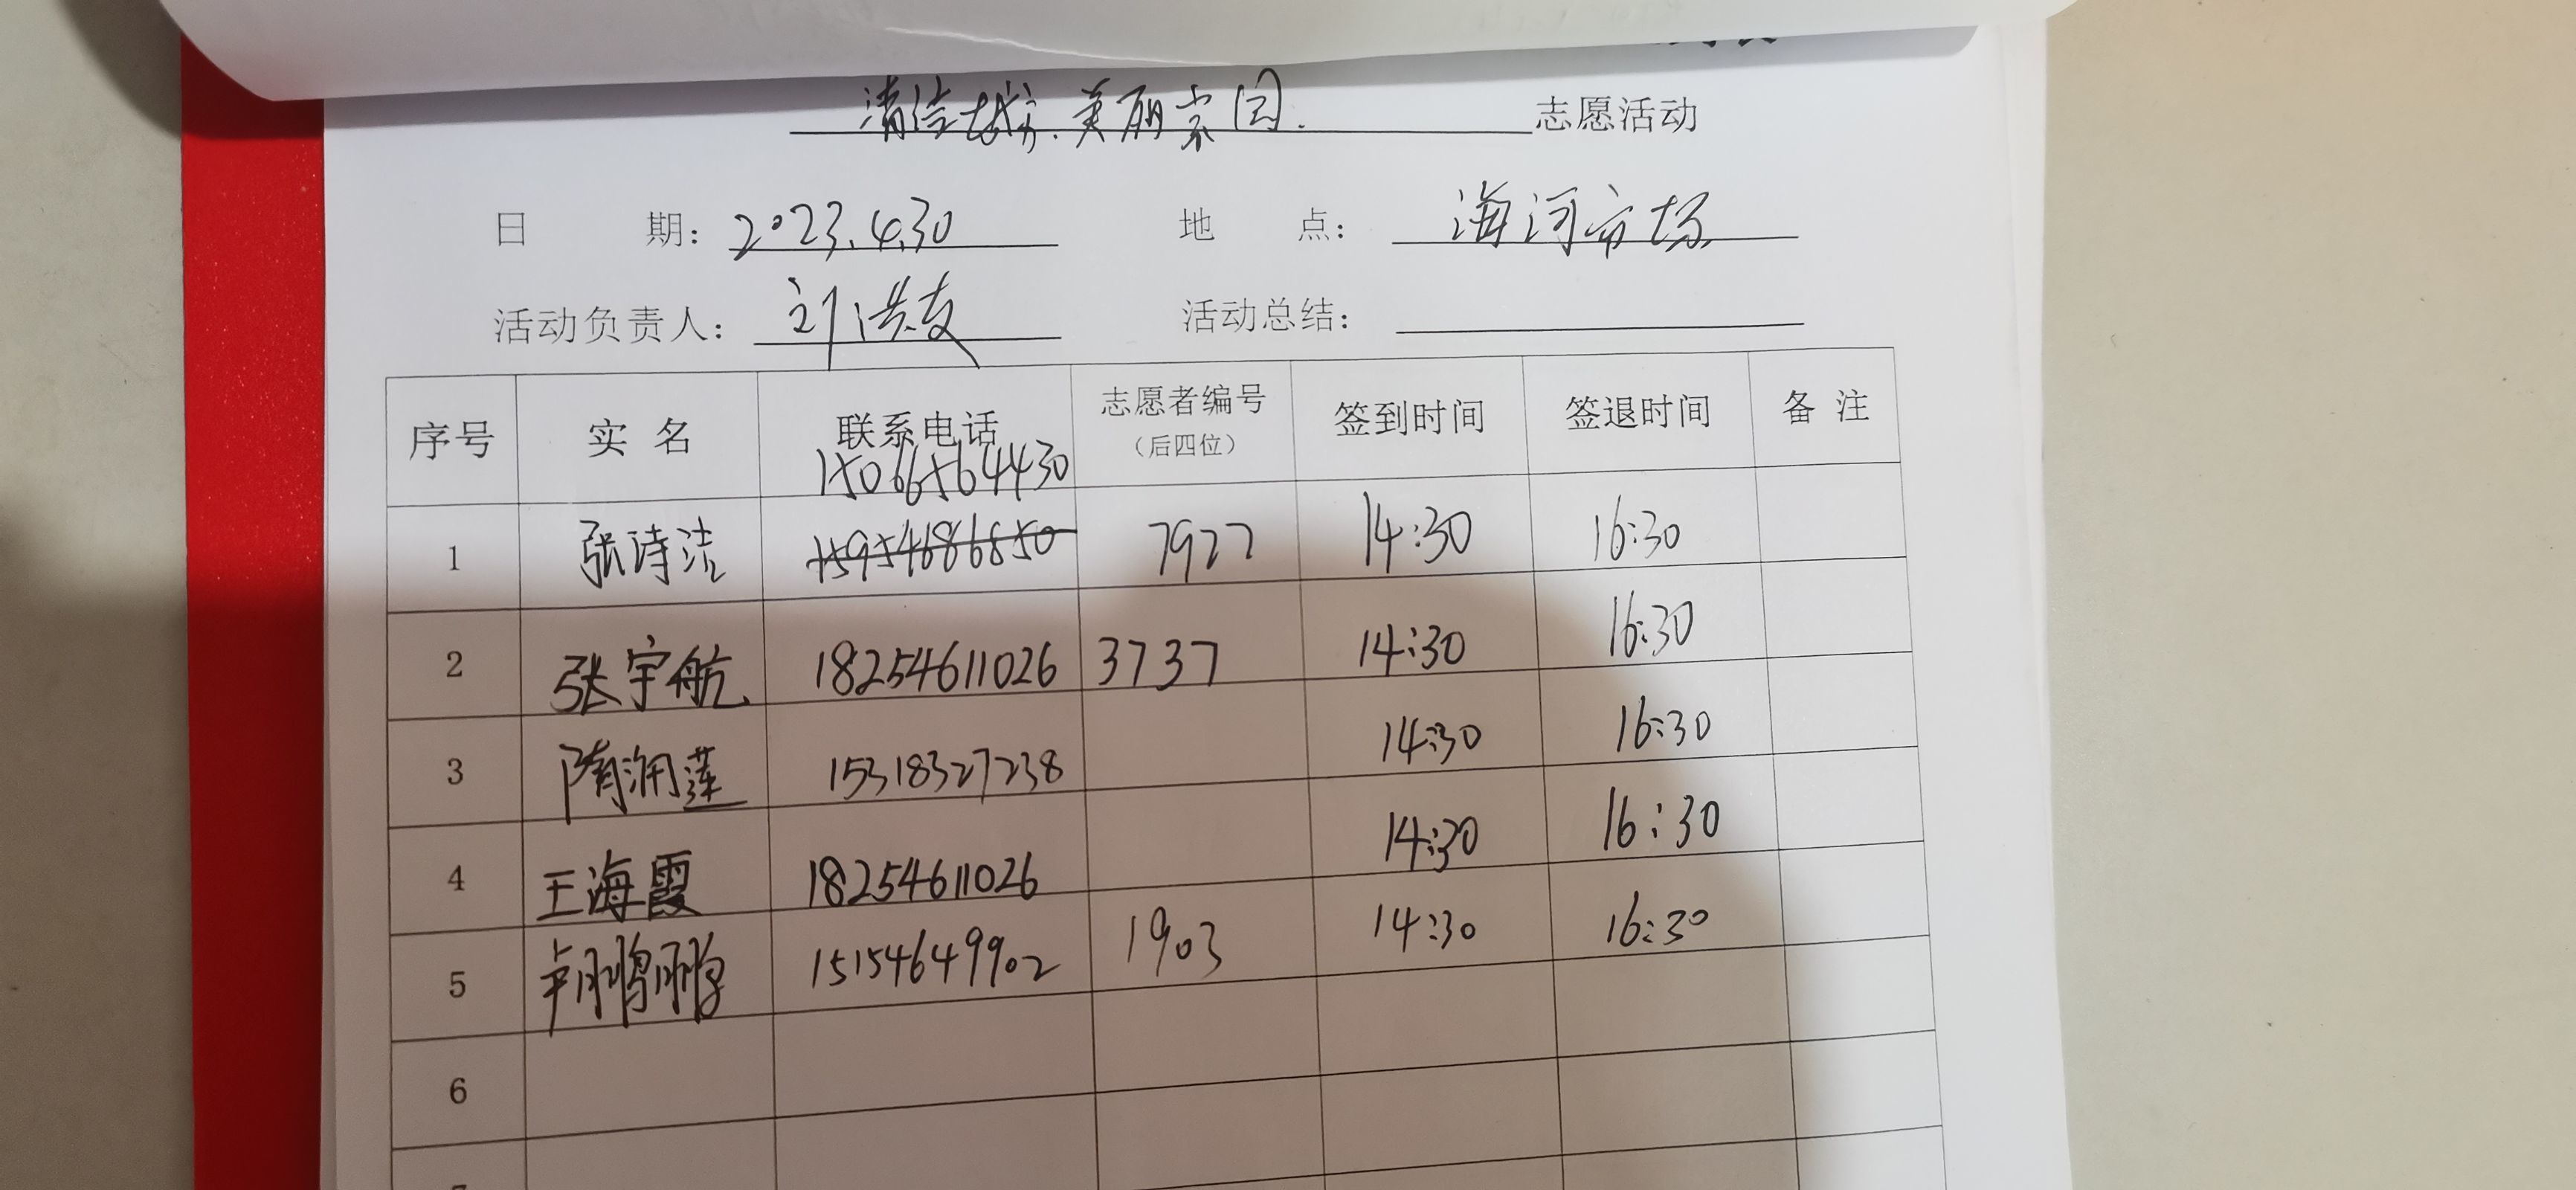 清洁城市.美丽家园. 志愿活动
日 期: 2023.4.30 地 点: 海河市场
活动负责人: 刘洪友 活动总结:
序号 实 名 联系电话 志愿者编号 (后四位) 签到时间 签退时间 备 注
15066564430
1 张诗洁 15954686850 7927 14:30 16:30
2 张宇航 18254611026 3737 14:30 16:30
3 隋润莲 15318327238 14:30 16:30
4 王海霞 18254611026 14:30 16:30
5 卢鹏鹏 15154649902 1903 14:30 16:30
6